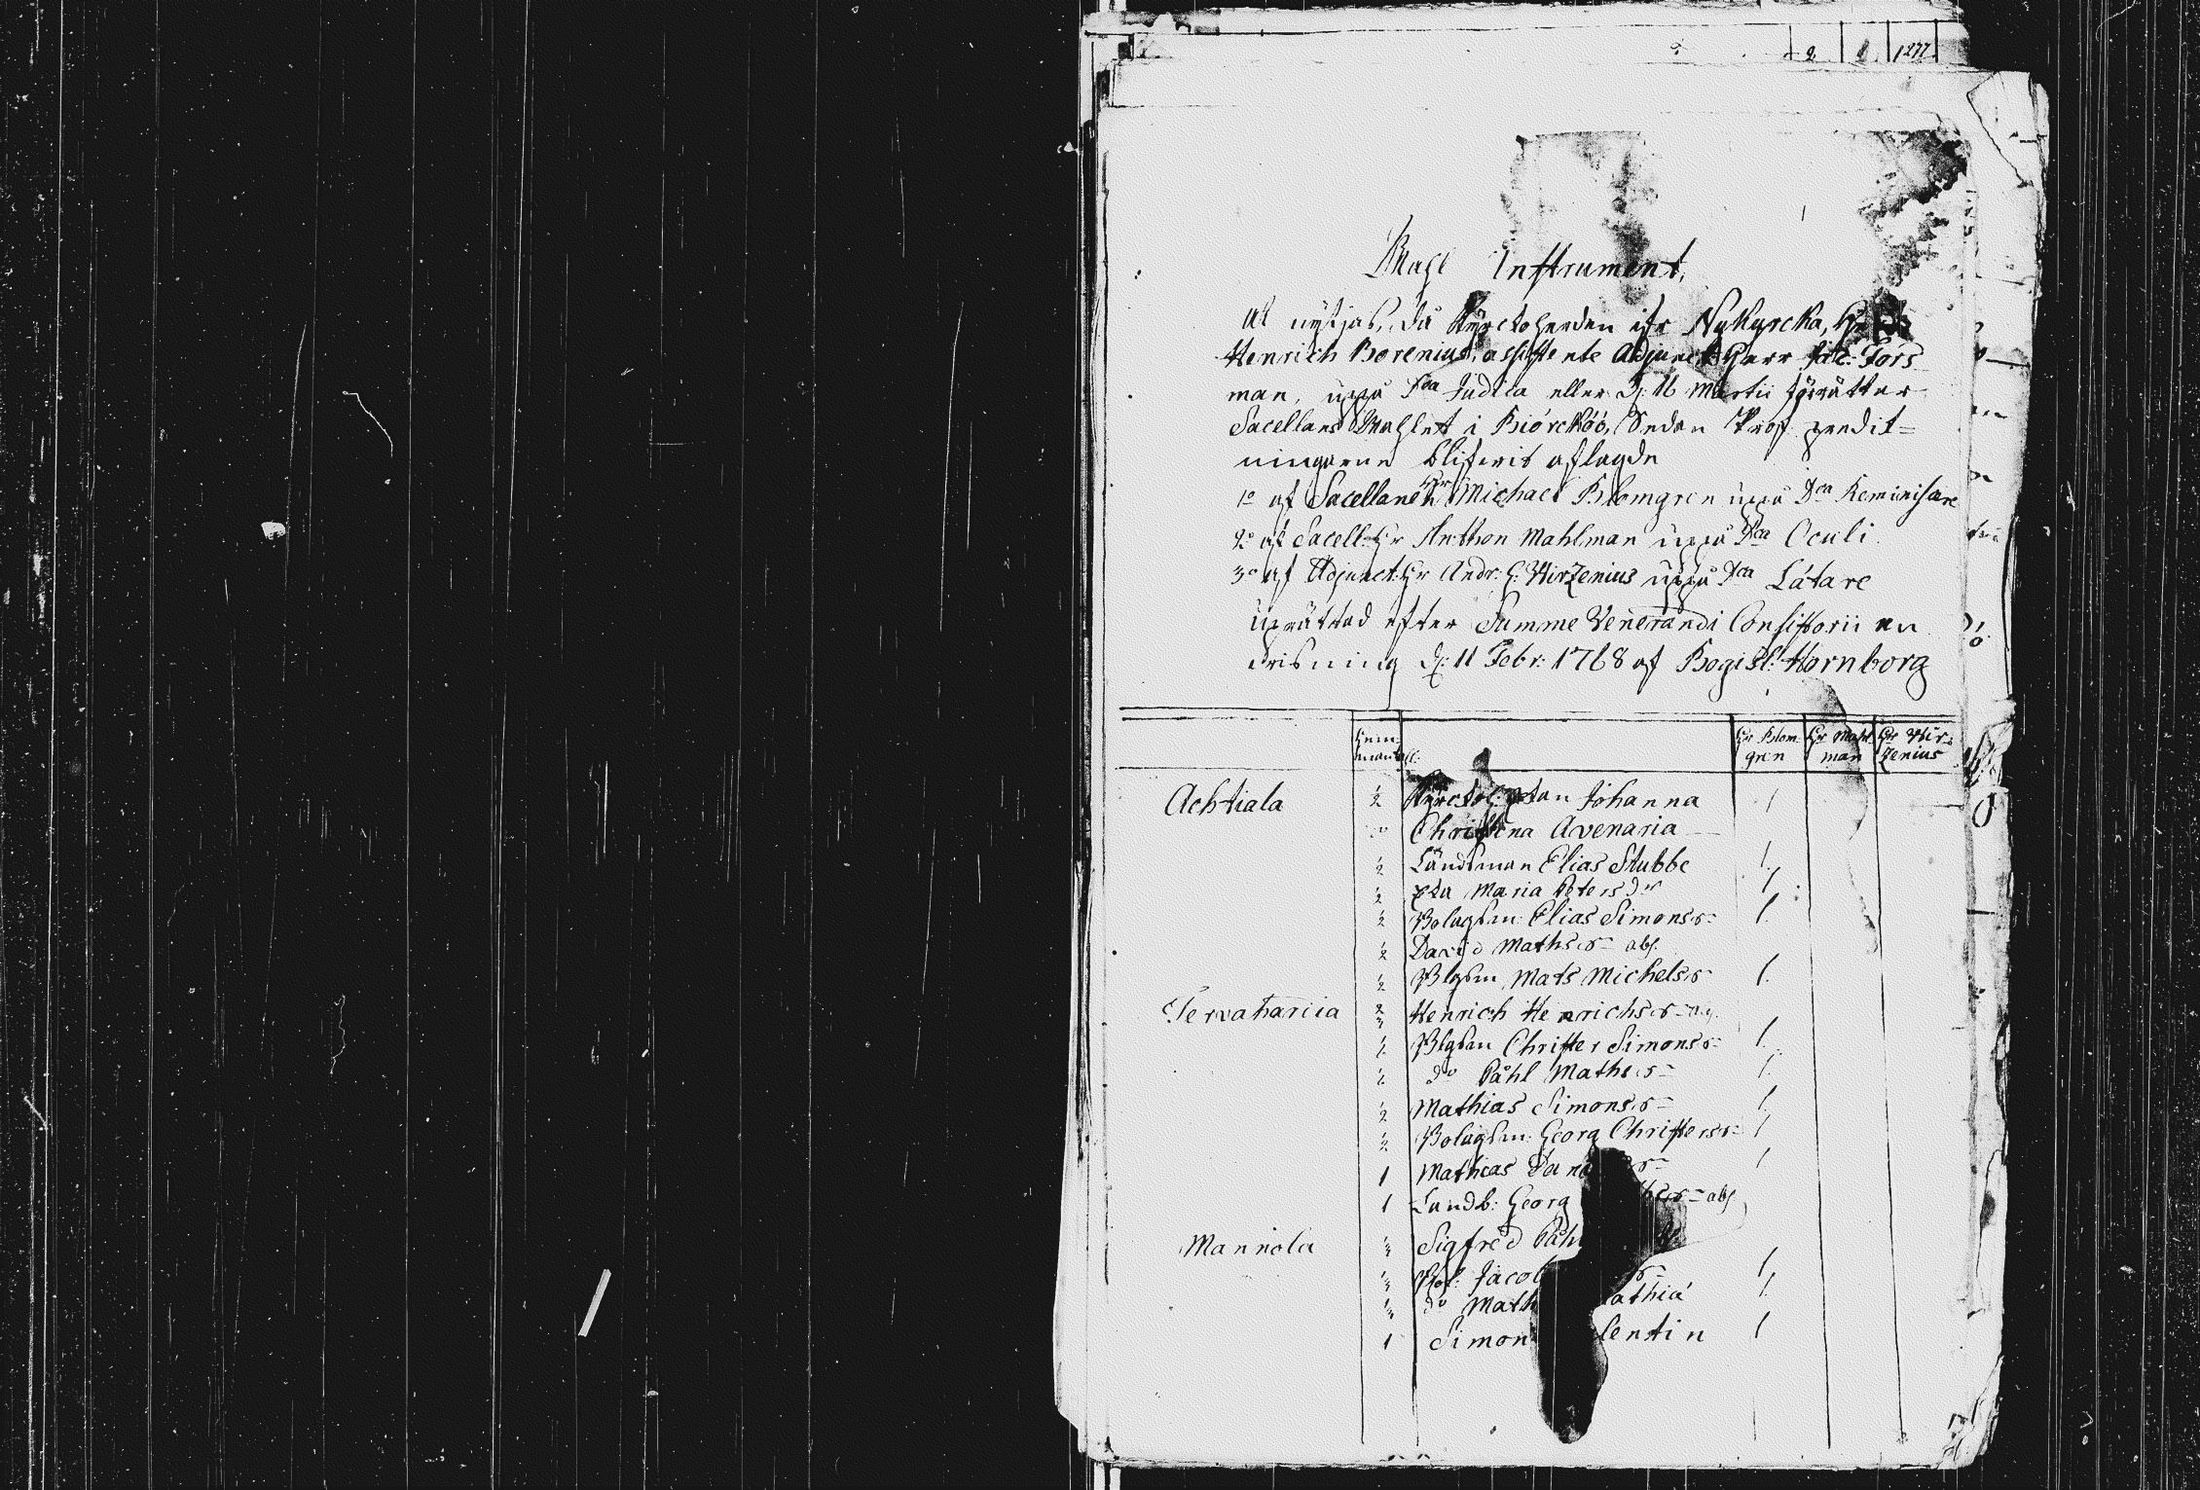 2 1277
Wahl Instrument,
at nytjas, då Kyrckoherden ifr Nykyrcka, Hr
Henrich Borenius, assistente Adjunct Herr Jac: Fors
man, uppå Dca Judica eller d: 16 Martii förrättar
Sacellans Wahlet i Biörcköö, Sedan Prof predik=
ningarne blifwit aflagde
1o af Sacellanen Hr Michael Blomgren uppå Dca Reminisare
2o af Sacell: Hr Anthon Mahlman uppå Dca Oculi.
3o af Adjunct: Hr Andr: G: Hirzenius uppå Dca Lätare
uprättad efter Summe Venerandi Consistorii an
wisning d: 11 Febr: 1768 af Hornborg
Hem Hr Blom Hr Mahl Hr Hir
mantal: gren man zenius
Achtiala 1/2 Johanna 1
do Christina Avenaria
1/2 Ländsman Elias Stubbe 1.
1/2 Maria Peters dr 1.
1/2 Bolagsm: Elias Simonss: 1.
1/2 David Mathss abs.
1/2 Blgsm Mats Michelss 1.
Tervahariia 2/3 Henrich Henrichss
1/2 Blgsm Christer Simonss 1.
1/2 do Påhl Mathss 1.
1/2 Mathias Simonss 1
1/2 Bolagsm: Georg Christerss: 1
1 Mathias 1
1 Landb: Georg abs
Mannola 1/3 Sigfred Påhl
1/3 Bol: Jacob 1.
1/3 do Math athiæ 1.
1 Simon lentin 1